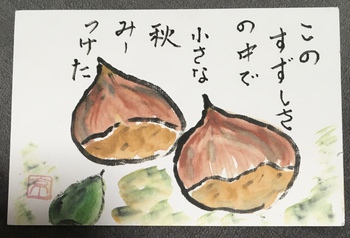 この
すずしさ
の中で
小さな
秋
みーつけた